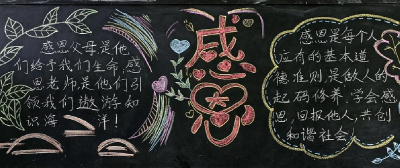 感恩父母是他
们给予我们生命,感
恩老师是他们引
领我们遨游知
识海洋!
感恩
感恩是每个人
应有的基本道
德准则是做人的
起码修养.学会感
恩.回报他人,共创
和谐社会!